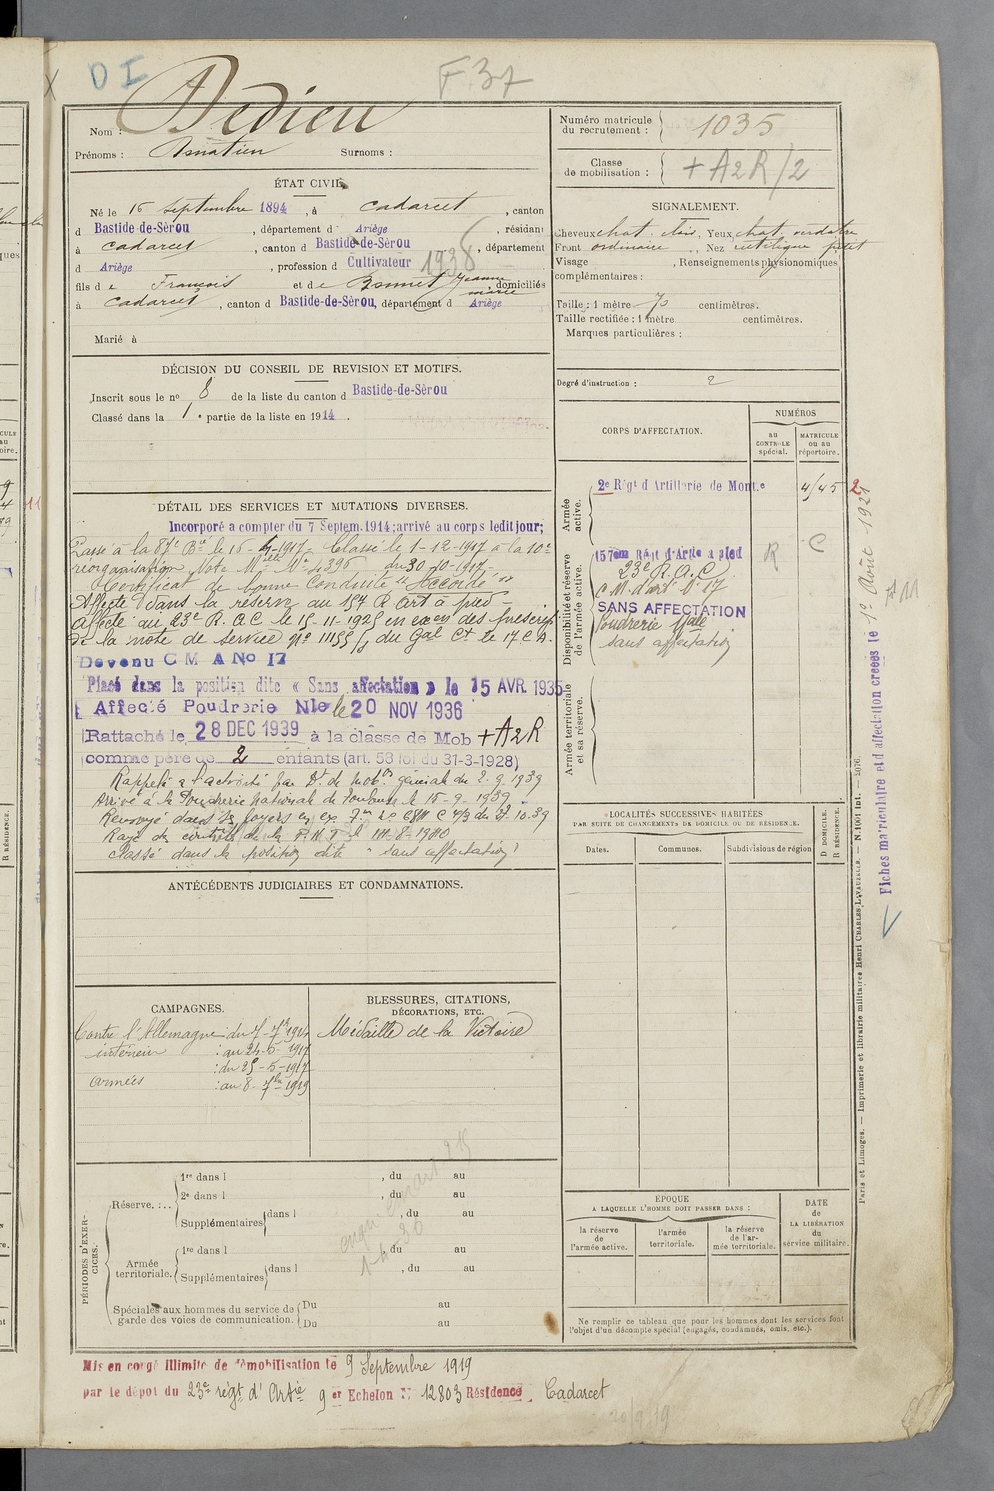 D I
F 37
Nom : Dedieu
Prénoms : Donatien Surnoms :
Numéro matricule
du recrutement : 1035
Classe
de mobilisation : + A2R/2
ÉTAT CIVIL
Né le 16 septembre 1894, à Cadarcet, canton
d Bastide-de-Sèrou, département d Ariège, résidant
à Cadarcet, canton d Bastide-de-Sèrou, département
d Ariège, profession d Cultivateur 1938
fils de François et de Bonnet Jeanne, domiciliés
à Cadarcet, canton d Bastide-de-Sèrou, département d Ariège
Marié à
SIGNALEMENT.
Cheveux chat. clair, Yeux chat. verdatre
Front ordinaire, Nez rectiligne petit
Visage , Renseignements physionomiques
complémentaires :
Taille : 1 mètre 70 centimètres.
Taille rectifiée : 1 mètre centimètres.
Marques particulières :
Degré d'instruction : 2
DÉCISION DU CONSEIL DE REVISION ET MOTIFS.
Inscrit sous le no 8 de la liste du canton d Bastide-de-Sèrou
Classé dans la 1e partie de la liste en 1914.
DÉTAIL DES SERVICES ET MUTATIONS DIVERSES.
Incorporé a compter du 7 Septem. 1914; arrivé au corps ledit jour;
Passé à la 87e Bie le 16-4-1917 - Classé le 1-12-1917 à la 10e
réorganisation Note Melle No 4396 du 30-10-1917-
Certificat de bonne Conduite "Accordé"
Affecté dans la réserve au 157 R art à pied -
Affecté au 23e R.A.C. le 15-11-1925 en exon des prescrip
de la note de service No 11135 du Gal Ct le 17 C.A.
Devenu C M A No 17
Placé dans la position dite « Sans affectation » le 15 AVR. 1935
Affecté Poudrerie Nle le 20 NOV 1936
Rattaché le 28 DEC 1939 à la classe de Mob + A2R
comme père de 2 enfants (art. 58 loi du 31-3-1928)
Rappelé à l'activité par Dt de Mobon générale du 2.9.1939
Arrivé à la Poudrerie Nationale de Toulouse le 15-9-1939
Renvoyé dans ses foyers en ex. 
Rayé des contrôles de la
Classé dans la position dite "sans affectation"
CORPS D'AFFECTATION.
NUMÉROS
au
CONTRÔLE
spécial.
MATRICULE
ou au
répertoire.
Armée
active.
2e Régt d'Artillerie de Mont.e 4/45 2
Disponibilité et réserve
de l'armée active.
157ème Régt d'Artie à pied R C
23e R.A.C.
C.M. d'art. No 17
SANS AFFECTATION
Poudrerie Nale
Sans affectation
Armée territoriale
et sa réserve.
Fiches matriculaire et d'affectation créées le 1er Août 1927
LOCALITÉS SUCCESSIVES HABITÉES
PAR SUITE DE CHANGEMENTS DE DOMICILE OU DE RÉSIDENCE.
Dates. Communes. Subdivisions de région
D DOMICILE.
R RÉSIDENCE.
ANTÉCÉDENTS JUDICIAIRES ET CONDAMNATIONS.
CAMPAGNES.
Contre l'Allemagne du 7-7bre 1914
intérieur : au 24-5-1917
: du 25-5-1917
armées : au 8-7bre 1919
BLESSURES, CITATIONS,
DÉCORATIONS, ETC.
Médaille de la Victoire
PÉRIODES D'EXER-
CICES.
Réserve. :..
1re dans l , du au
2e dans l , du au
Supplémentaires dans l , du au
Armée
territoriale.
1re dans l , du au
Supplémentaires dans l , du au
Spéciales aux hommes du service de
garde des voies de communication.
Du au
Du au
ÉPOQUE
A LAQUELLE L'HOMME DOIT PASSER DANS :
la réserve
de l'armée active.
l'armée
territoriale.
la réserve
de l'ar-
mée territoriale.
DATE
de
LA LIBÉRATION
du
service militaire.
Ne remplir ce tableau que pour les hommes dont les services font
l'objet d'un décompte spécial (engagés, condamnés, omis, etc.).
Paris et Limoges. — Imprimerie et librairie militaires Henri CHARLES-LAVAUZELLE. — N. 1001 Int. — 2076.
Mis en congé illimité de démobilisation le 9 Septembre 1919
par le dépôt du 23e régt d'Artie 9 er Echelon No 12803 Résidence Cadarcet
20/9/19